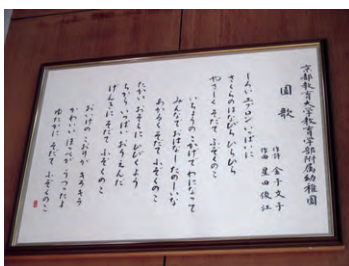 京都教育大学教育学部附属幼稚園
園歌
作詩 金子文子
作曲 星田俊江
しろい エプロン いっぱいに
さくらのはなびら ひらひら
やさしく そだて ふぞくのこ
いちょうのこかげで わになって
みんなでおはなし たのしいな
あかるく そだて ふぞくのこ
たかい おそらに ひびくよう
ちからいっぱい おうえんだ
げんきに そだて ふぞくのこ
おいけの こおりが きらきら
かわいい ほっぺが うつったよ
ゆたかに そだて ふぞくのこ